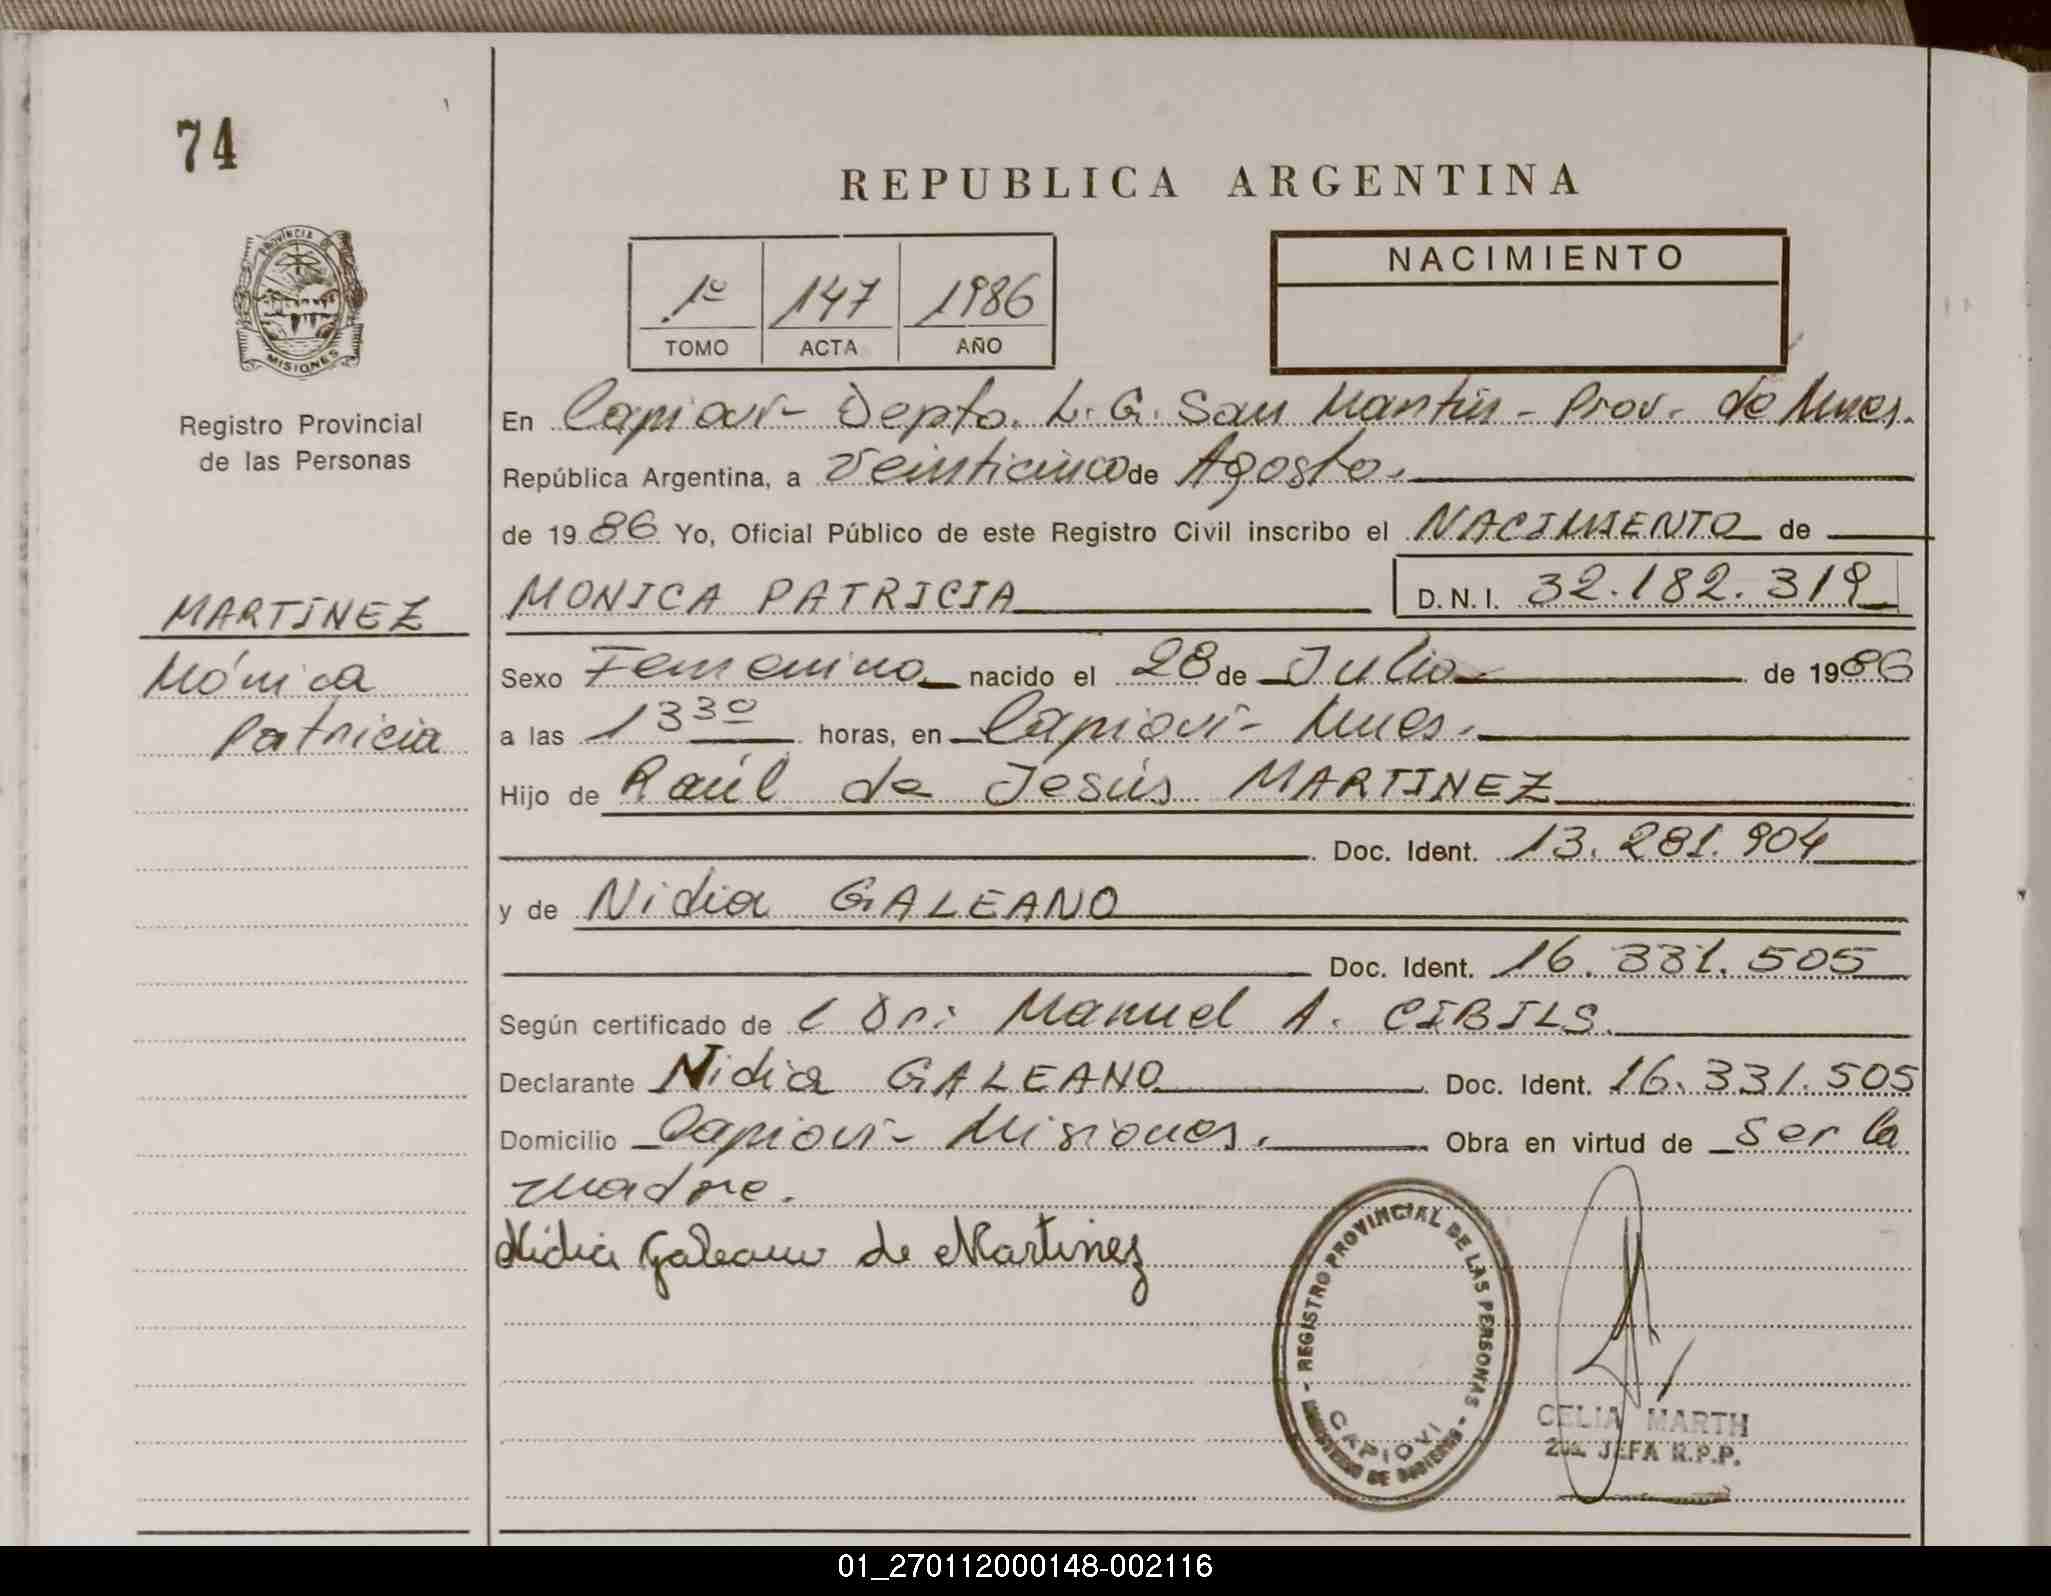 74
REPUBLICA ARGENTINA
PROVINCIA DE
MISIONES
Registro Provincial
de las Personas
1º 147 1986
TOMO ACTA AÑO
NACIMIENTO
En Capioví - Depto. L. G. San Martín - Prov. de Mnes.
República Argentina, a veinticinco de Agosto.
de 1986 Yo, Oficial Público de este Registro Civil inscribo el NACIMIENTO de
MARTÍNEZ
Mónica
Patricia
MONICA PATRICIA D.N.I. 32.182.319
Sexo Femenino nacido el 28 de Julio de 1986
a las 13 30 horas, en Capioví - Mnes.
Hijo de Raúl de Jesús MARTINEZ
Doc. Ident. 13.281.904
y de Nidia GALEANO
Doc. Ident. 16.331.505
Según certificado de Dr: Manuel A. CIBILS.
Declarante Nidia GALEANO Doc. Ident. 16.331.505
Domicilio Capioví - Misiones. Obra en virtud de ser la
madre.
Nidia Galeano de Martinez
- REGISTRO PROVINCIAL DE LAS PERSONAS -
MINISTERIO DE GOBIERNO
CAPIOVI
CELIA MARTH
2da. JEFA R.P.P.
01_270112000148-002116